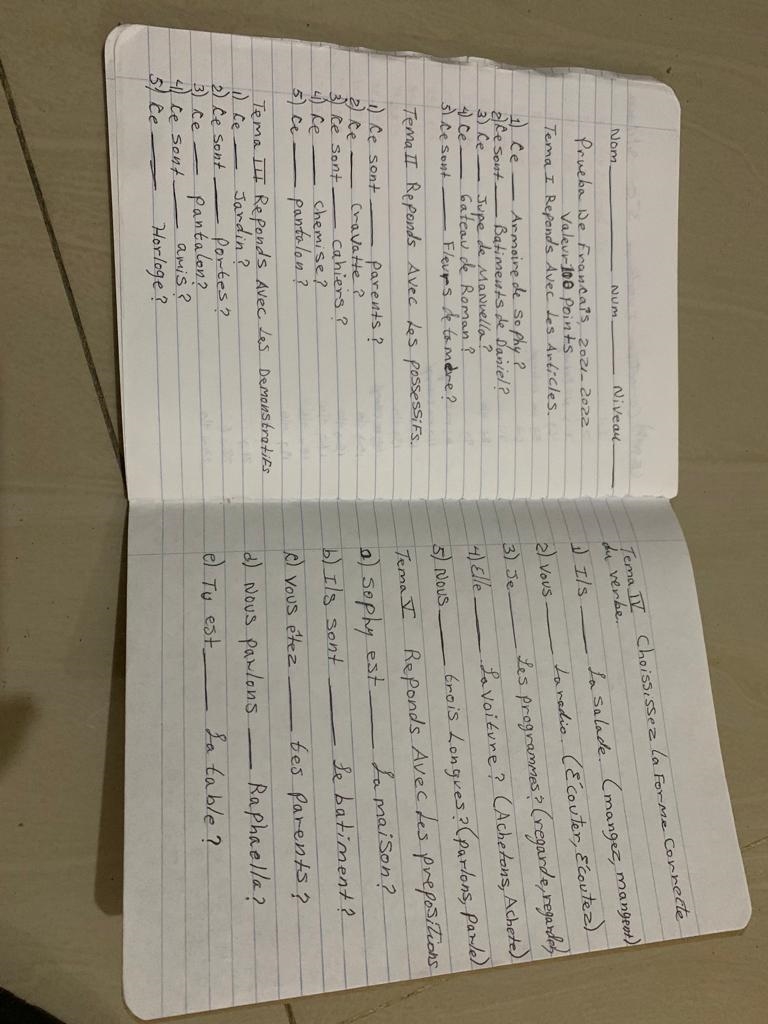 Nom______ Num______ Niveau______
Prueba De Francais, 2021-2022
Valeur 100 points
Tema I Reponds Avec Les Articles.
1) Ce ___ Armoire de Sophy?
2) Ce sont ___ Batiments de Daniel?
3) Ce ___ Jupe de Manuella?
4) Ce ___ Gateau de Roman?
5) Ce sont ___ Fleurs de ta mère?
Tema II Reponds Avec Les possessifs.
1) Ce sont ___ parents?
2) Ce ___ Cravatte?
3) Ce sont ___ cahiers?
4) Ce ___ chemise?
5) Ce ___ pantalon?
Tema III Reponds Avec Les Demonstratifs
1) Ce ___ Jardin?
2) Ce sont ___ portes?
3) Ce ___ pantalon?
4) Ce sont ___ amis?
5) Ce ___ Horloge?
Tema IV Choississez La Forme Correcte
du verbe.
1) Ils ___ La Salade. (mangez, mangent)
2) Vous ___ La radio. (Écouter, Écoutez)
3) Je ___ Les programmes? (regarde, regardes)
4) Elle ___ La voiture? (Achetons, Achete)
5) Nous ___ trois Longues? (parlons, parle)
Tema V Reponds Avec Les prepositions
a) Sophy est ___ La maison?
b) Ils sont ___ Le batiment?
c) Vous étez ___ tes parents?
d) Nous parlons ___ Raphaella?
e) Tu est ___ La table?